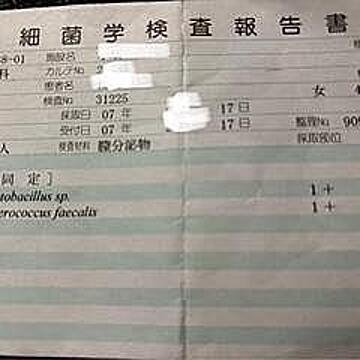 細菌学検査報告書
8-01 施設名
科 カルテNo
患者名
検査No 31225 女
採取日 07 年 17 日
受付日 07 年 17 日 整理No 909
人 検査材料 膣分泌物 採取部位
同定]
tobacillus sp. 1+
erococcus faecalis 1+